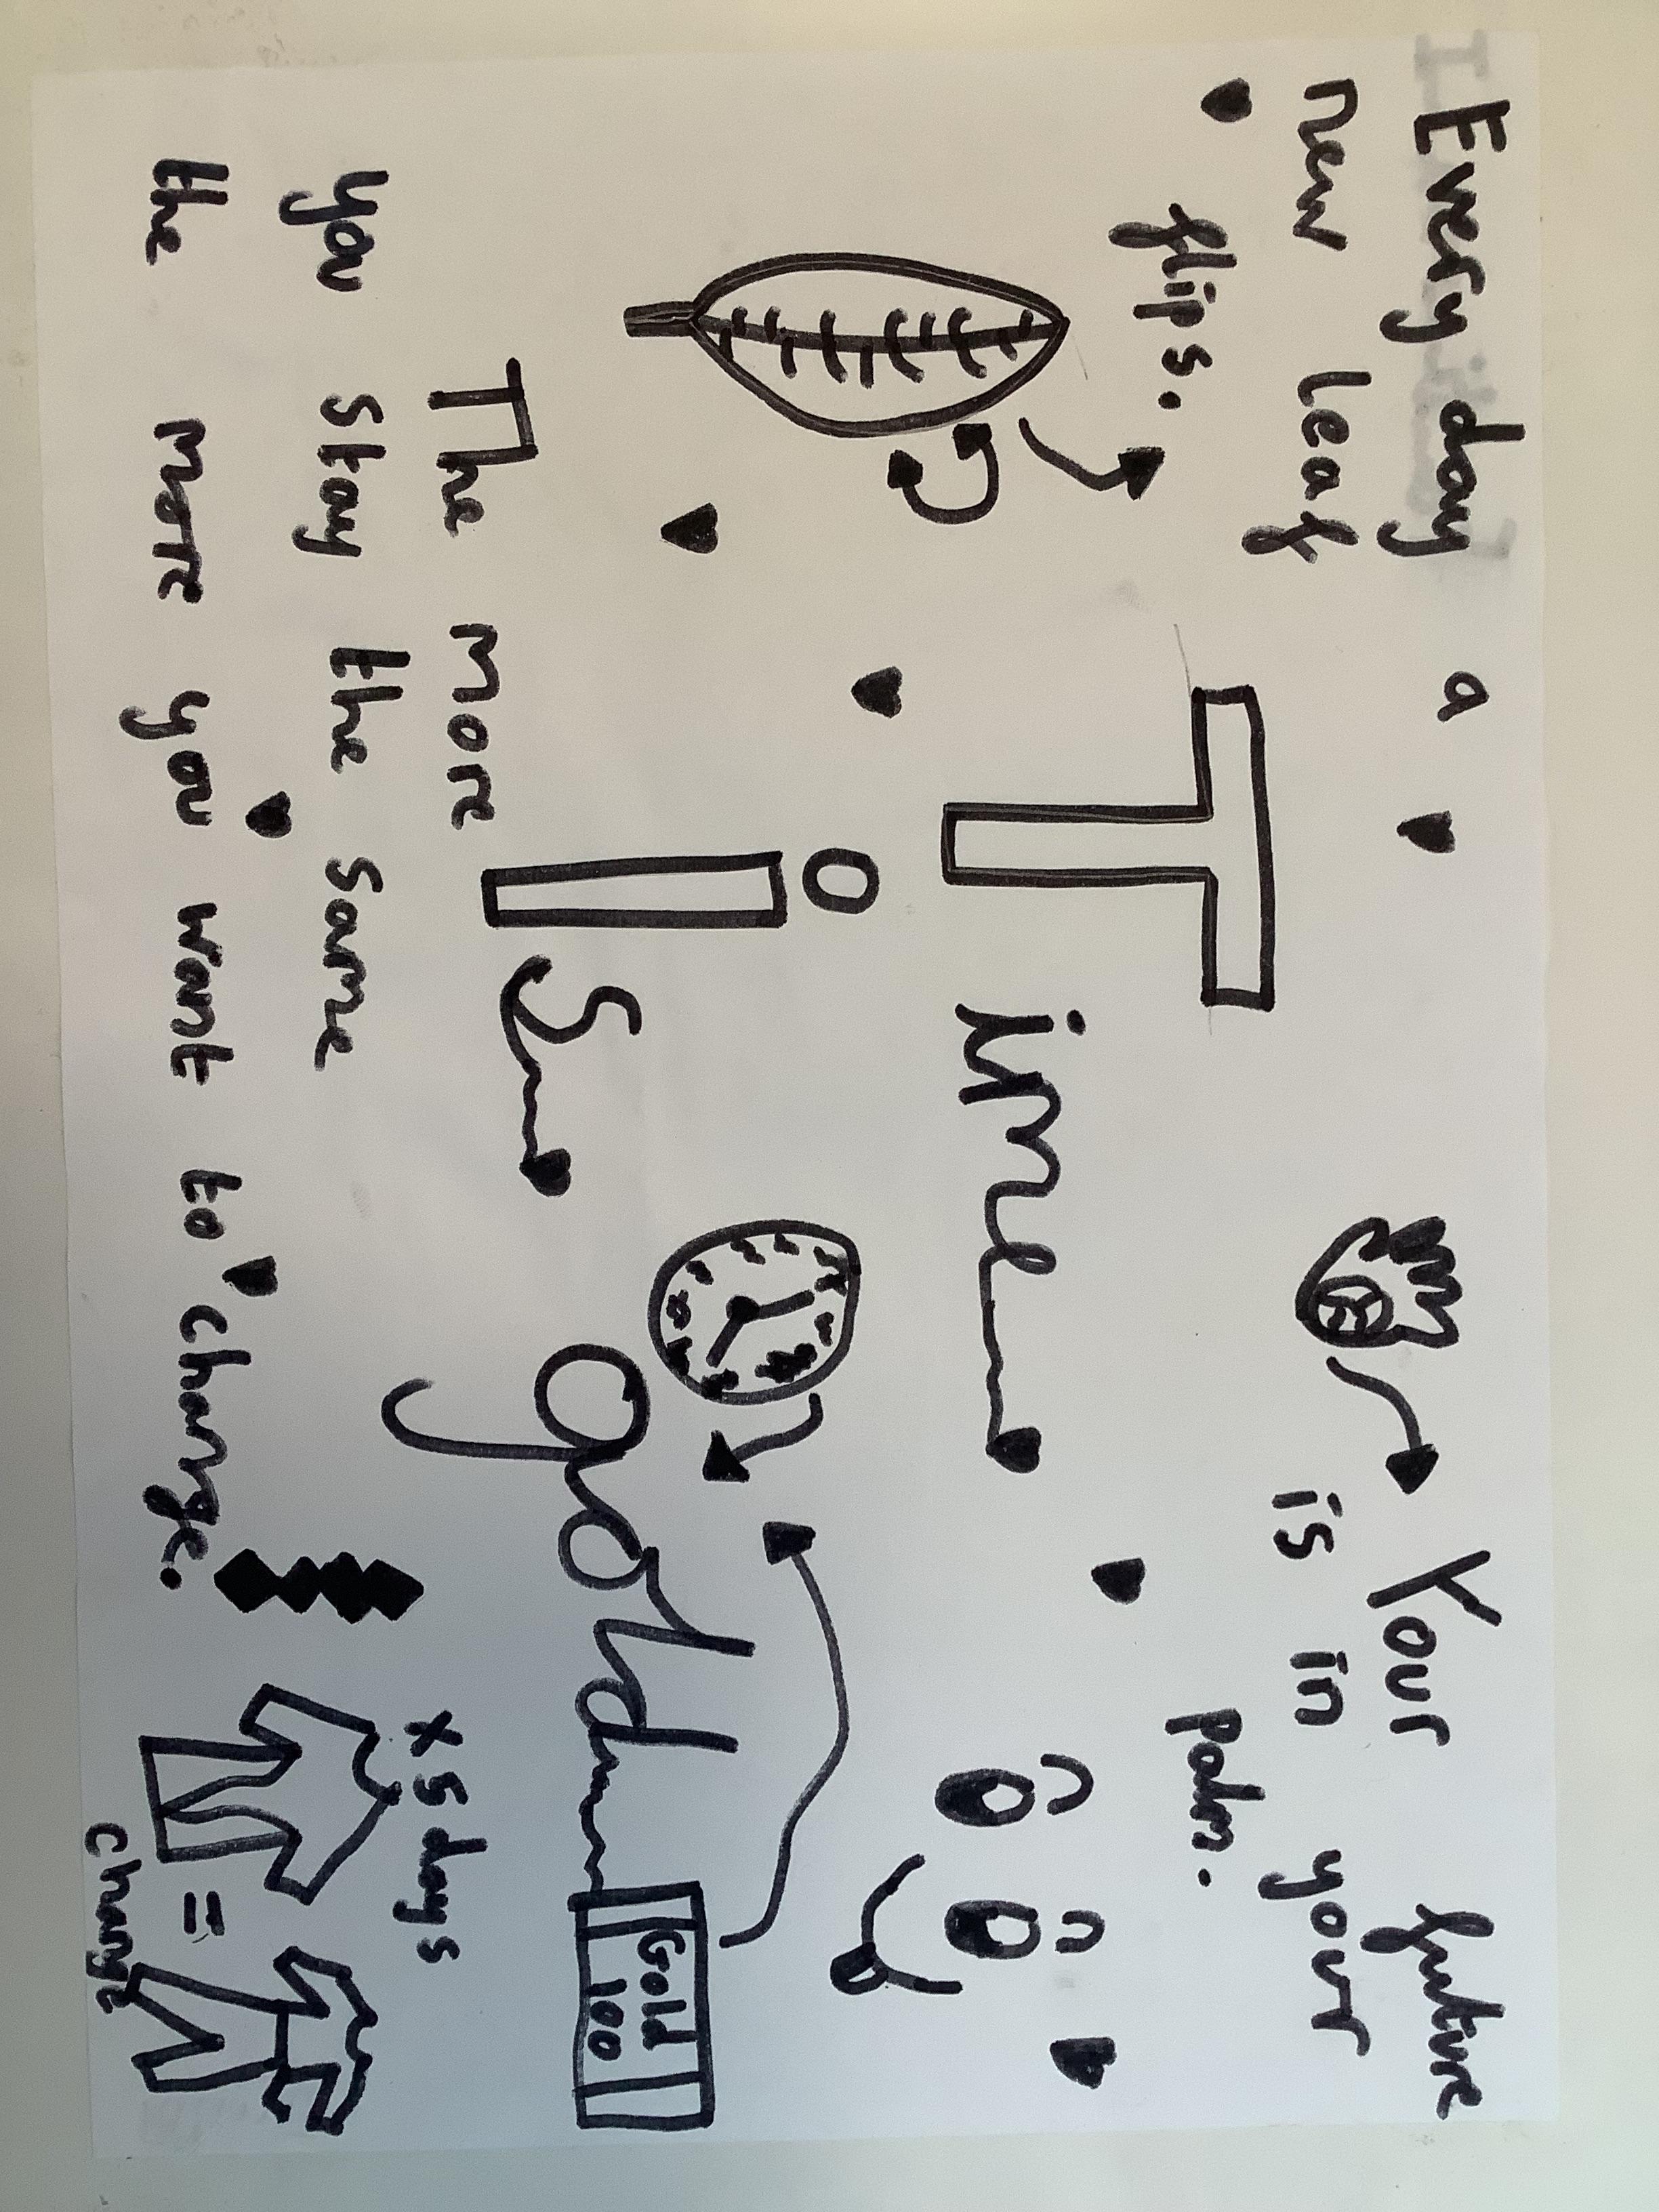 Every day a
new leaf
flips.
Your future
is in your
palm.
Time
is
golden
Gold
100
The more
you stay the same
the more you want to change.
x5 days
=
change